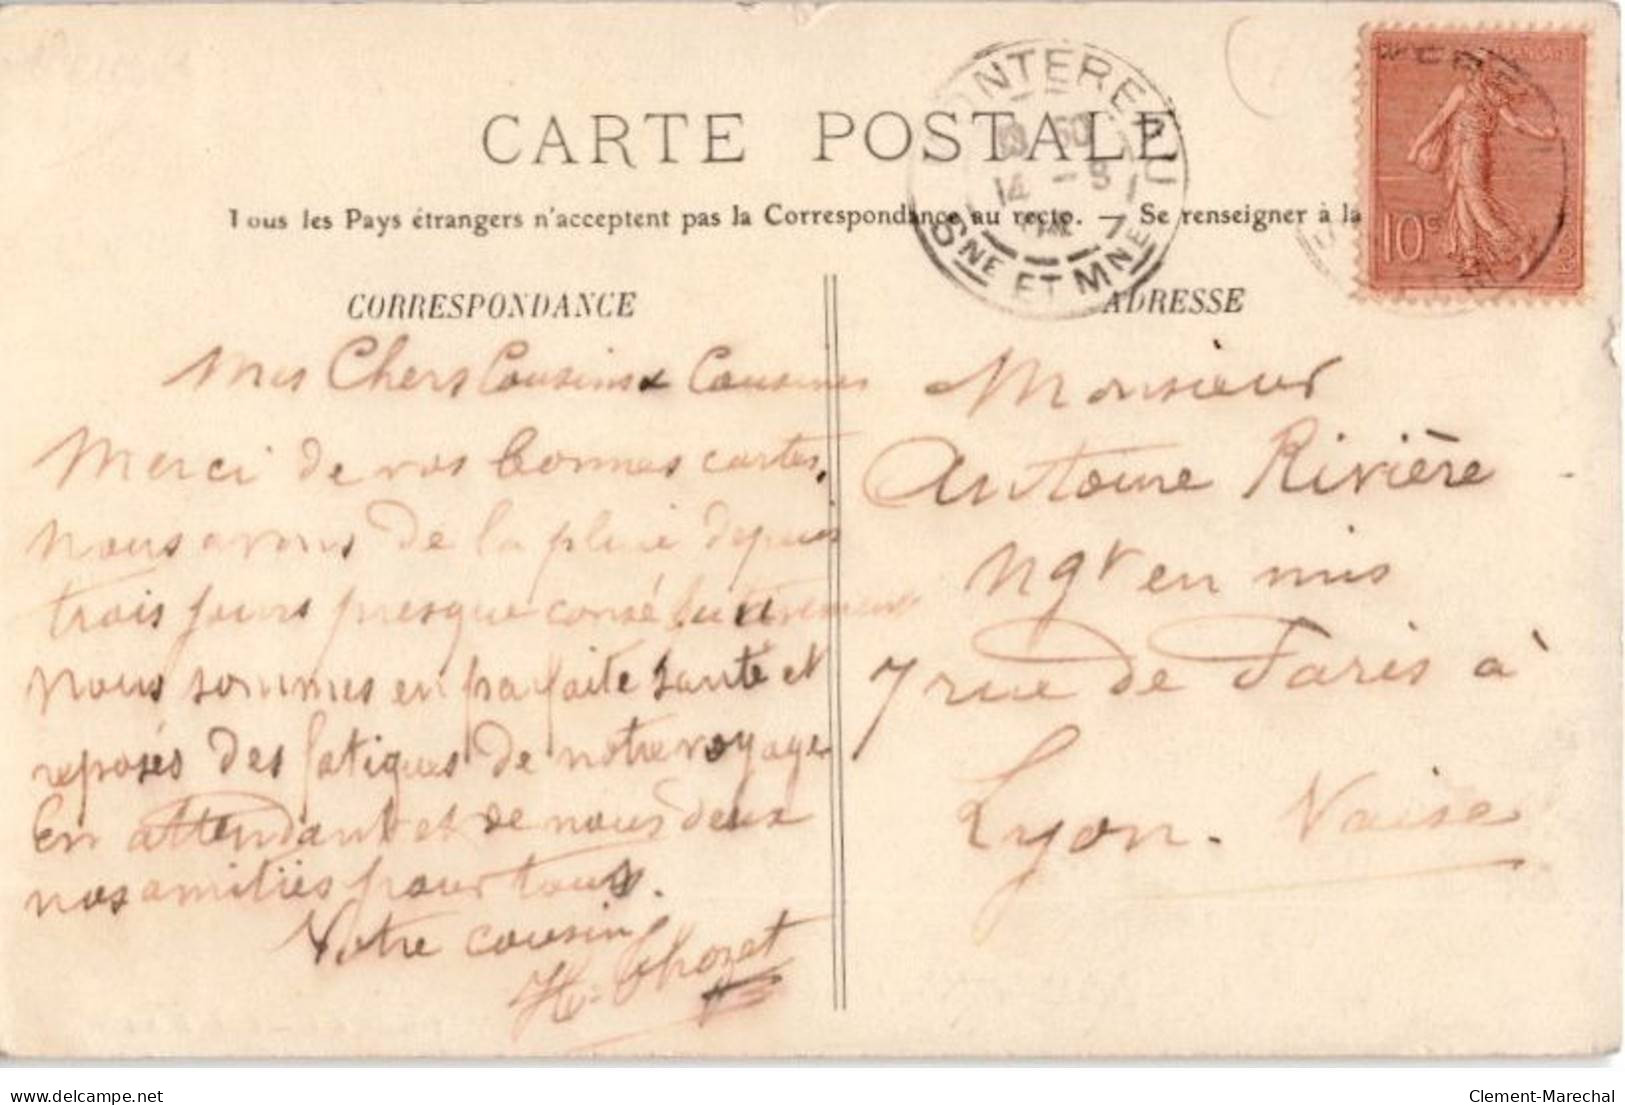 CARTE POSTALE
Tous les Pays étrangers n'acceptent pas la Correspondance au recto. — Se renseigner à la
MONTEREAU
14 - 5
SNE ET MNE
10c
CORRESPONDANCE
Mes Chers Cousins & Cousines
Merci de vos bonnes cartes.
Nous avons de la pluie depuis
trois jours presque consécutivement
Nous sommes en parfaite santé et
reposés des fatigues de notre voyage
En attendant et de nous deux
nos amitiés pour tous.
Votre cousin
H. Chozet
ADRESSE
Monsieur
Antoine Rivière
Ngt en
7 rue de Paris à
Lyon. Vaise
delcampe.net
Clement-Marechal